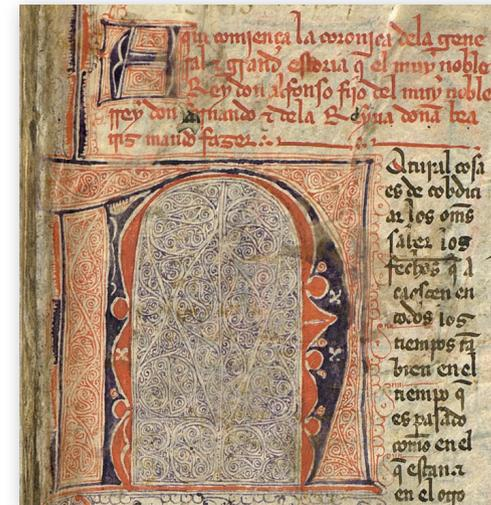 Aqui comiença la coronica dela gene
ral ⁊ grand estoria q̃ el muy noble
Rey don alfonso fijo del muy noble
rrey don fernando ⁊ dela Reyna dona bea
tris mando fazer
Natural cosa
es de cobdici
ar los om̃s
saber los
fechos q̃ a
caescen en
todos los
tiempos tã
bien en el
tiempo q̃
es pasado
como en el
q̃ estan ⁊
en el otro